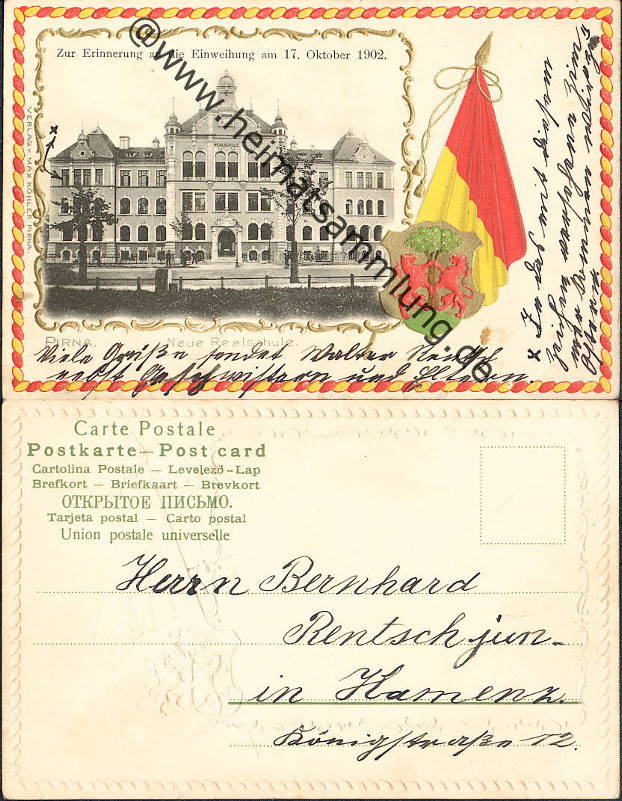 Zur Erinnerung an die Einweihung am 17. Oktober 1902.
REALSCHULE
VERLAG V. MAX KÖHLER, PIRNA.
©www.heimatsammlung.de
PIRNA. Neue Realschule.
Viele Grüße sendet Walter
nebst Geschwistern und Eltern.
x In das mit diesem
Zeichen versehene Zim-
mer kommen
Ostern
Carte Postale
Postkarte — Post card
Cartolina Postale — Levelező-Lap
Brefkort — Briefkaart — Brevkort
ОТКРЫТОЕ ПИСЬМО.
Tarjeta postal — Carto postal
Union postale universelle
Herrn Bernhard
Rentsch jun.
in Kamenz.
Königstraße 12.